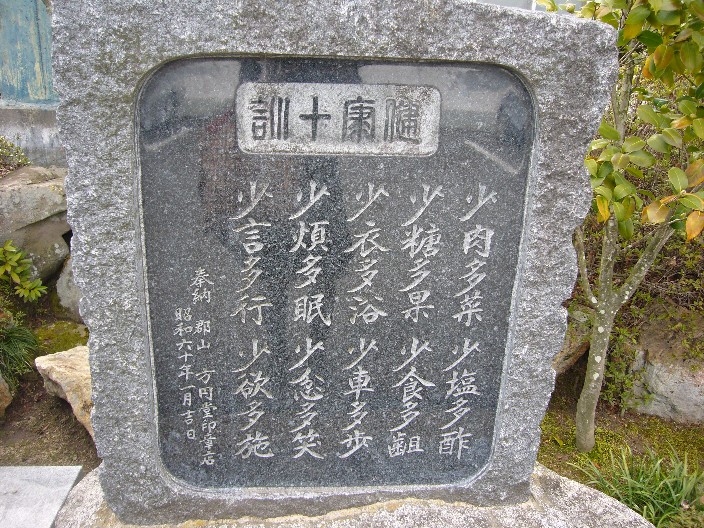 健康十訓
少肉多菜 少塩多酢
少糖多果 少食多齟
少衣多浴 少車多歩
少煩多眠 少念多笑
少言多行 少欲多施
奉納 郡山 方円堂印章店
昭和六十年一月吉日